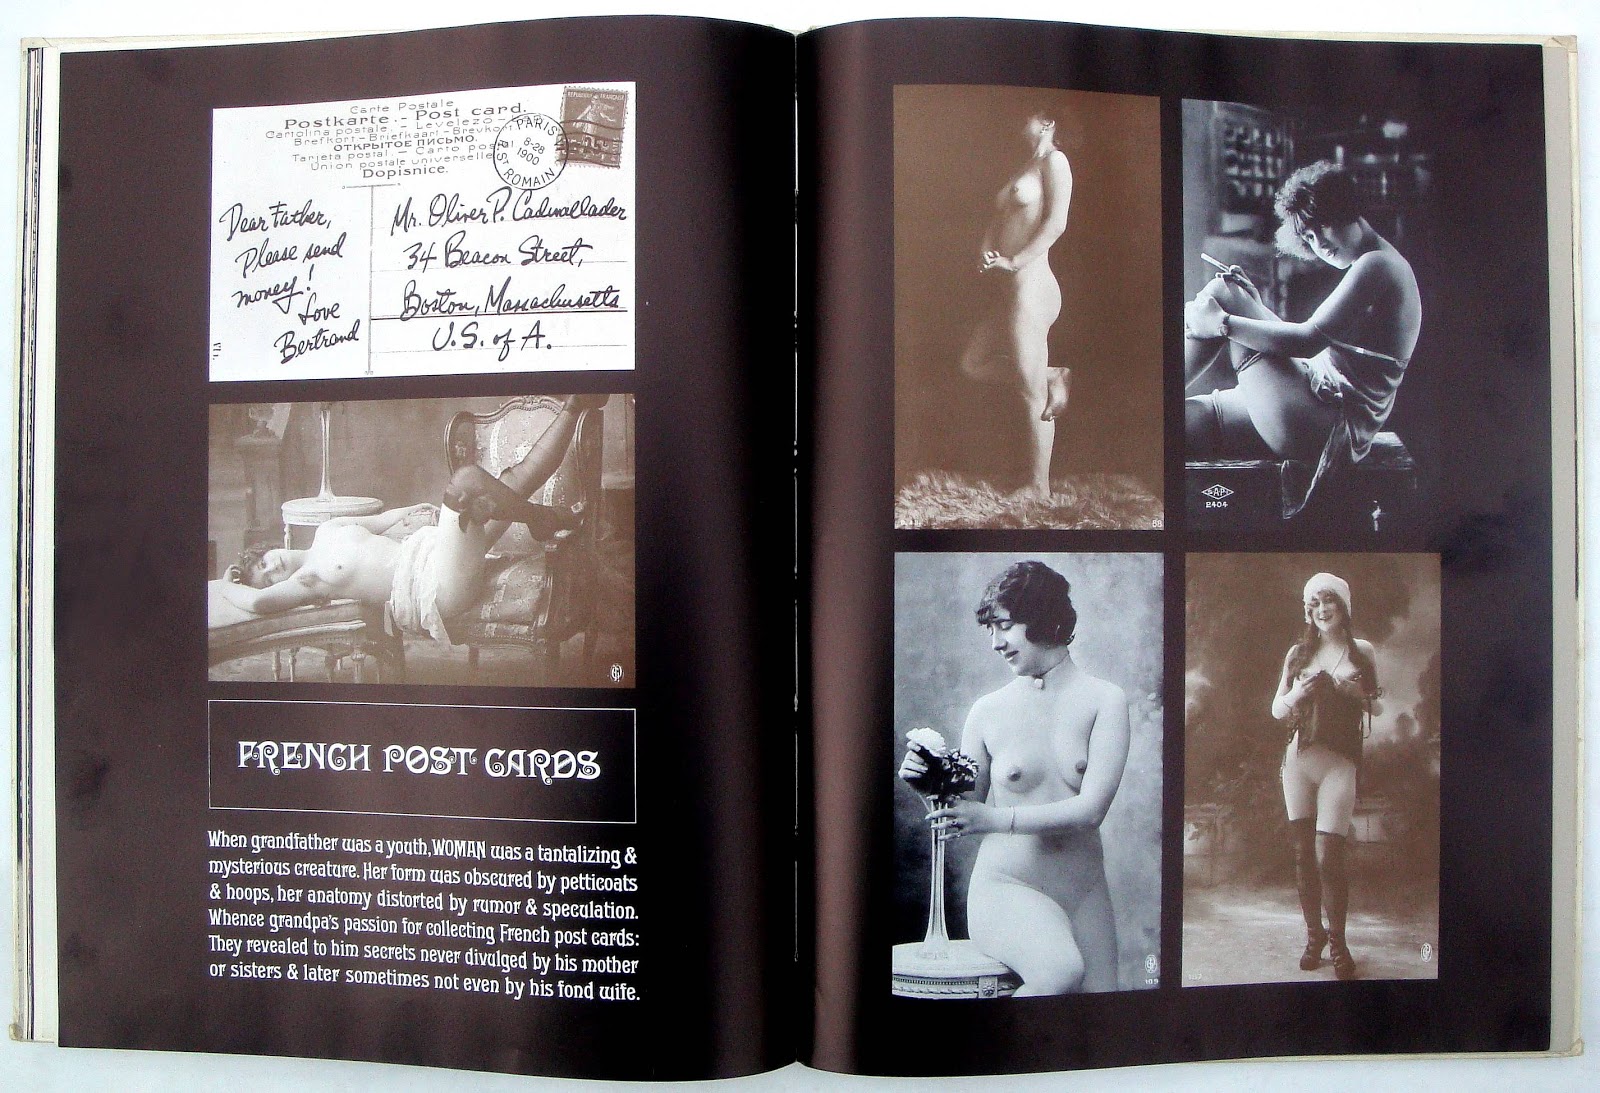 Carte Postale
Postkarte. - Post card.
Cartolina postale. - Levelezo-
Brefkort-Briefkaart-Brevkort
ОТКРЫТОЕ ПИСЬМО.
Tarjeta postal. - Carto postal
Union postale universelle
Dopisnice.
REPUBLIQUE FRANÇAISE
PARIS
8-28
1900
ROMAIN
Dear Father,
Please send
money!
Love
Bertrand
Mr. Oliver P. Cadwallader
34 Beacon Street,
Boston, Massachusetts
U.S. of A.
FRENCH POST CARDS
When grandfather was a youth, WOMAN was a tantalizing &
mysterious creature. Her form was obscured by petticoats
& hoops, her anatomy distorted by rumor & speculation.
Whence grandpa's passion for collecting French post cards:
They revealed to him secrets never divulged by his mother
or sisters & later sometimes not even by his fond wife.
2404